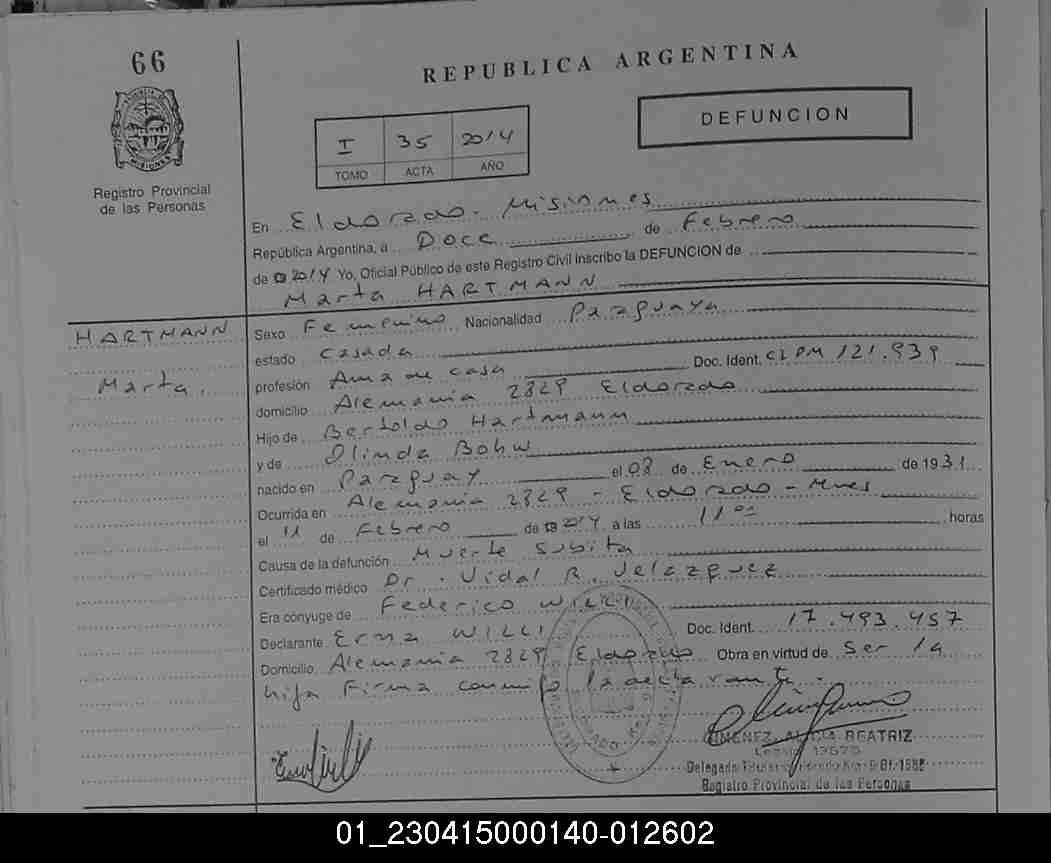 66
REPUBLICA ARGENTINA
PROVINCIA DE MISIONES
Registro Provincial
de las Personas
I 35 2014
TOMO ACTA AÑO
DEFUNCION
En Eldorado - Misiones
República Argentina, a Doce de Febrero
de 2014 Yo, Oficial Público de este Registro Civil inscribo la DEFUNCION de
Marta HARTMANN
HARTMANN
Marta.
Sexo Femenino Nacionalidad Paraguaya
estado Casada
profesión Ama de casa Doc. Ident. CIPM 121.939
domicilio Alemania 2829 Eldorado
Hijo de Bertoldo Hartmann
y de Olinda Bohw
nacido en Paraguay el 08 de Enero de 1931
Ocurrida en Alemania 2829 - Eldorado - Mnes
el 11 de Febrero de 2014 a las 11 00 horas
Causa de la defunción Muerte Subita
Certificado médico Dr. Vidal R. Velazquez
Era cónyuge de Federico WILLI
Declarante Erna WILLI Doc. Ident. 17.493.457
Domicilio Alemania 2829 Eldorado Obra en virtud de Ser la
hija Firma conmigo la declarante.
BEATRIZ
Delegado Titular
Registro Provincial de las Personas
01_230415000140-012602